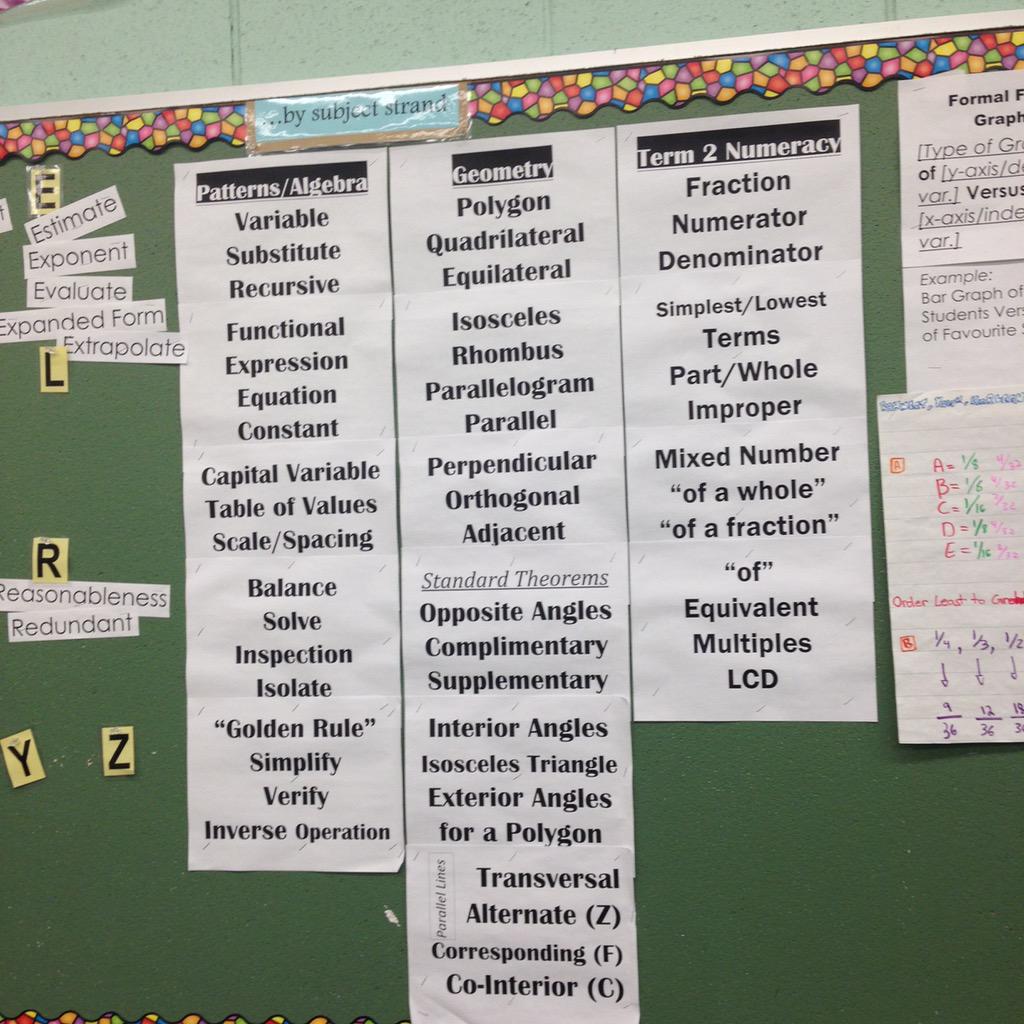 ...by subject strand
E
Estimate
Exponent
Evaluate
Expanded Form
Extrapolate
L
R
Reasonableness
Redundant
Y
Z
Patterns/Algebra
Variable
Substitute
Recursive
Functional
Expression
Equation
Constant
Capital Variable
Table of Values
Scale/Spacing
Balance
Solve
Inspection
Isolate
"Golden Rule"
Simplify
Verify
Inverse Operation
Geometry
Polygon
Quadrilateral
Equilateral
Isosceles
Rhombus
Parallelogram
Parallel
Perpendicular
Orthogonal
Adjacent
Standard Theorems
Opposite Angles
Complimentary
Supplementary
Interior Angles
Isosceles Triangle
Exterior Angles
for a Polygon
Parallel Lines
Transversal
Alternate (Z)
Corresponding (F)
Co-Interior (C)
Term 2 Numeracy
Fraction
Numerator
Denominator
Simplest/Lowest
Terms
Part/Whole
Improper
Mixed Number
"of a whole"
"of a fraction"
"of"
Equivalent
Multiples
LCD
Formal F
Graph
[Type of Gr
of [y-axis/de
var.] Versus
[x-axis/inde
var.]
Example:
Bar Graph of
Students Ver
of Favourite S
A
A = 1/8 4/32
B = 1/6
C = 1/16 2/32
D = 1/8 4/32
E = 1/16 2/32
Order Least to
B 1/4, 1/3, 1/2
9/36 12/36 18/3